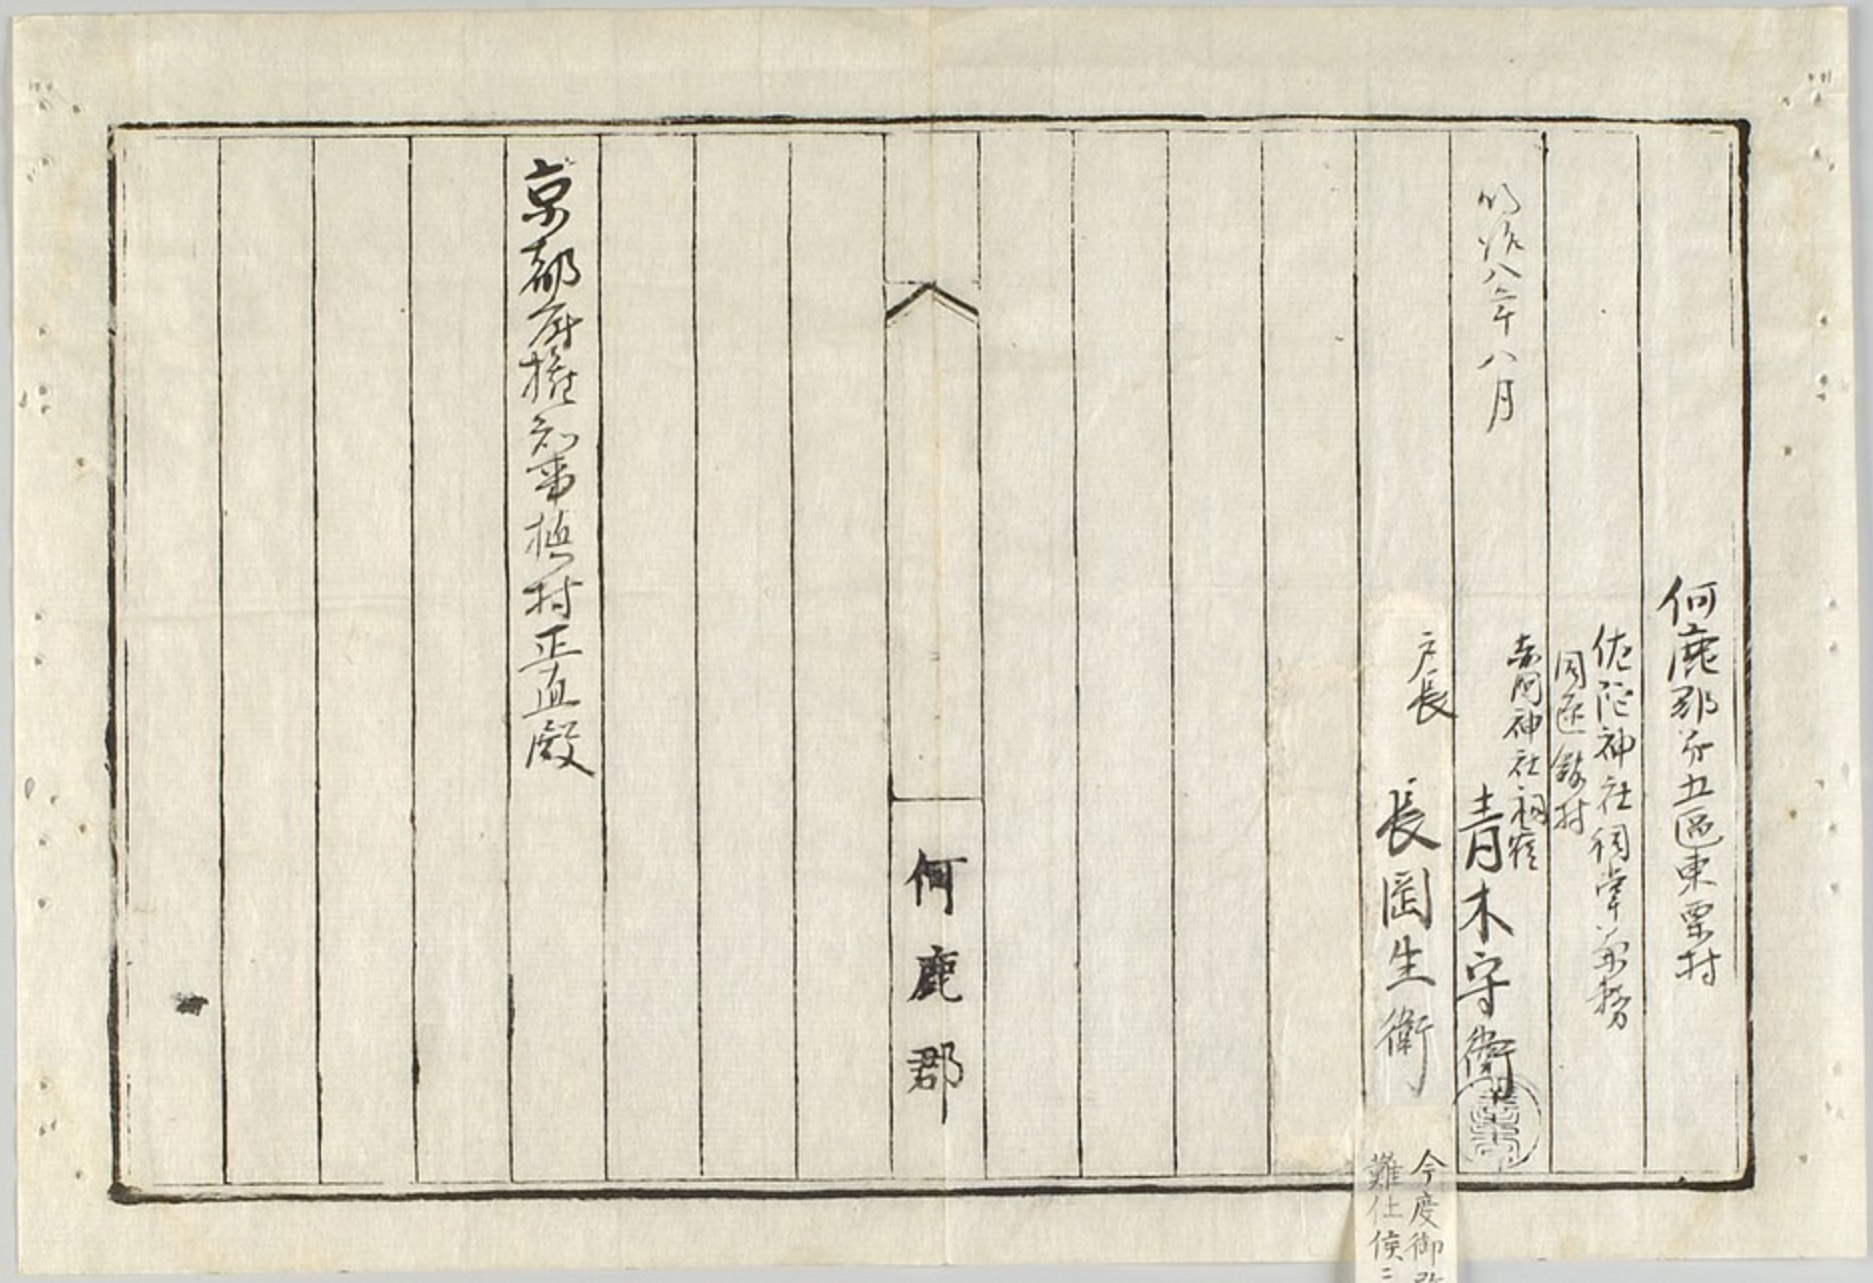 何鹿郡第五區東栗村
佐陀神社祠掌兼務
同區舘村
赤國神社祠官
青木守衛
明治八年八月
戸長 長岡生衛
今度御改
難仕候ニ
何鹿郡
京都府権知事槙村正直殿